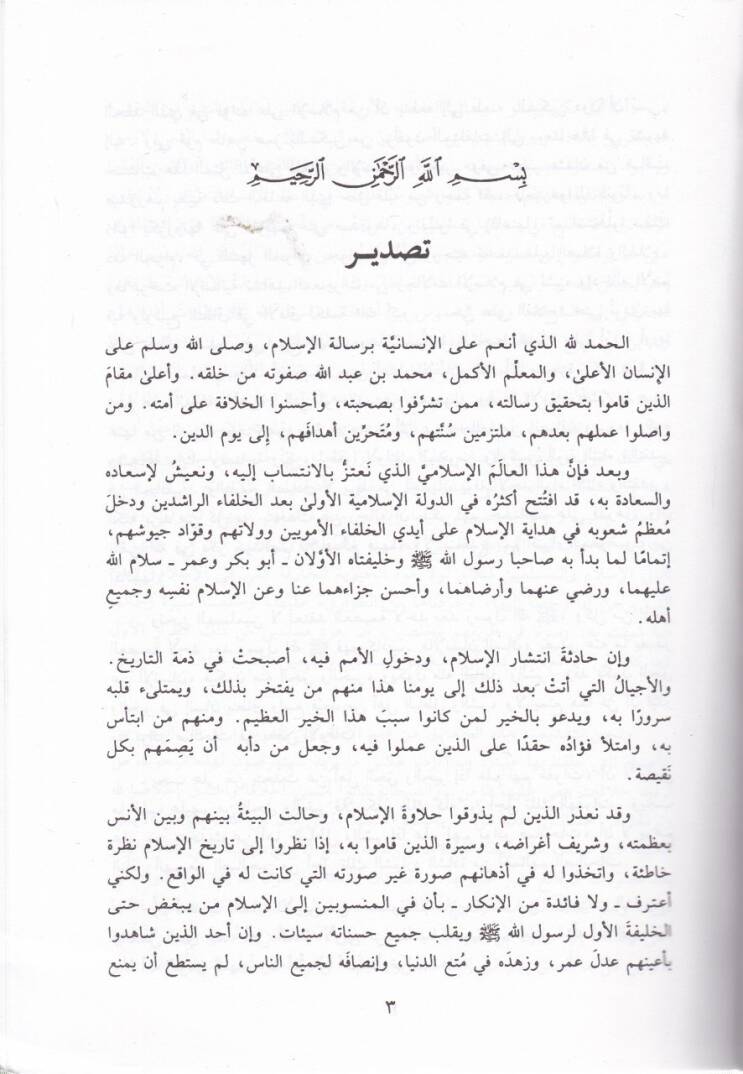 بِسْمِ اللَّهِ الرَّحْمَٰنِ الرَّحِيمِ
تصدير
الحمد لله الذي أنعم على الإنسانيَّة برسالة الإسلام، وصلى الله وسلم على
الإنسان الأعلىٰ، والمعلِّم الأكمل، محمد بن عبد الله صفوته من خلقه. وأعلىٰ مقامَ
الذين قاموا بتحقيق رسالته، ممن تشرَّفوا بصحبته، وأحسنوا الخلافة على أمته. ومن
واصلوا عملهم بعدهم، ملتزمين سُنَّتهم، ومُتَحرِّين أهدافَهم، إلى يوم الدين.
وبعد فإنَّ هذا العالَمَ الإسلاميَّ الذي نَعتزُّ بالانتساب إليه، ونعيشُ لإسعاده
والسعادة به، قد افتُتح أكثرُه في الدولة الإسلامية الأولىٰ بعد الخلفاء الراشدين ودخلَ
مُعظمُ شعوبه في هداية الإسلام على أيدي الخلفاء الأمويين وولاتهم وقوّاد جيوشهم،
إتمامًا لما بدأ به صاحبا رسول الله ﷺ وخليفتاه الأوّلان ـ أبو بكر وعمر ـ سلام الله
عليهما، ورضي عنهما وأرضاهما، وأحسن جزاءهما عنا وعن الإسلام نفسِه وجميعِ
أهله.
وإن حادثةَ انتشار الإسلام، ودخولِ الأمم فيه، أصبحتْ في ذمة التاريخ.
والأجيالُ التي أتتْ بعد ذلك إلى يومنا هذا منهم من يفتخر بذلك، ويمتلىء قلبه
سرورًا به، ويدعو بالخير لمن كانوا سببَ هذا الخير العظيم. ومنهم من ابتأس
به، وامتلأ فؤادُه حقدًا على الذين عملوا فيه، وجعل من دأبه أن يَصِمَهم بكل
نَقيصة.
وقد نعذر الذين لم يذوقوا حلاوةَ الإسلام، وحالت البيئةُ بينهم وبين الأنس
بعظمته، وشريف أغراضه، وسيرة الذين قاموا به، إذا نظروا إلى تاريخ الإسلام نظرة
خاطئة، واتخذوا له في أذهانهم صورة غير صورته التي كانت له في الواقع. ولكني
أعترف ـ ولا فائدة من الإنكار ـ بأن في المنسوبين إلى الإسلام من يبغض حتى
الخليفةَ الأول لرسول الله ﷺ ويقلب جميع حسناته سيئات. وإن أحد الذين شاهدوا
بأعينهم عدلَ عمر، وزهدَه في مُتع الدنيا، وإنصافَه لجميع الناس، لم يستطع أن يمنع
٣